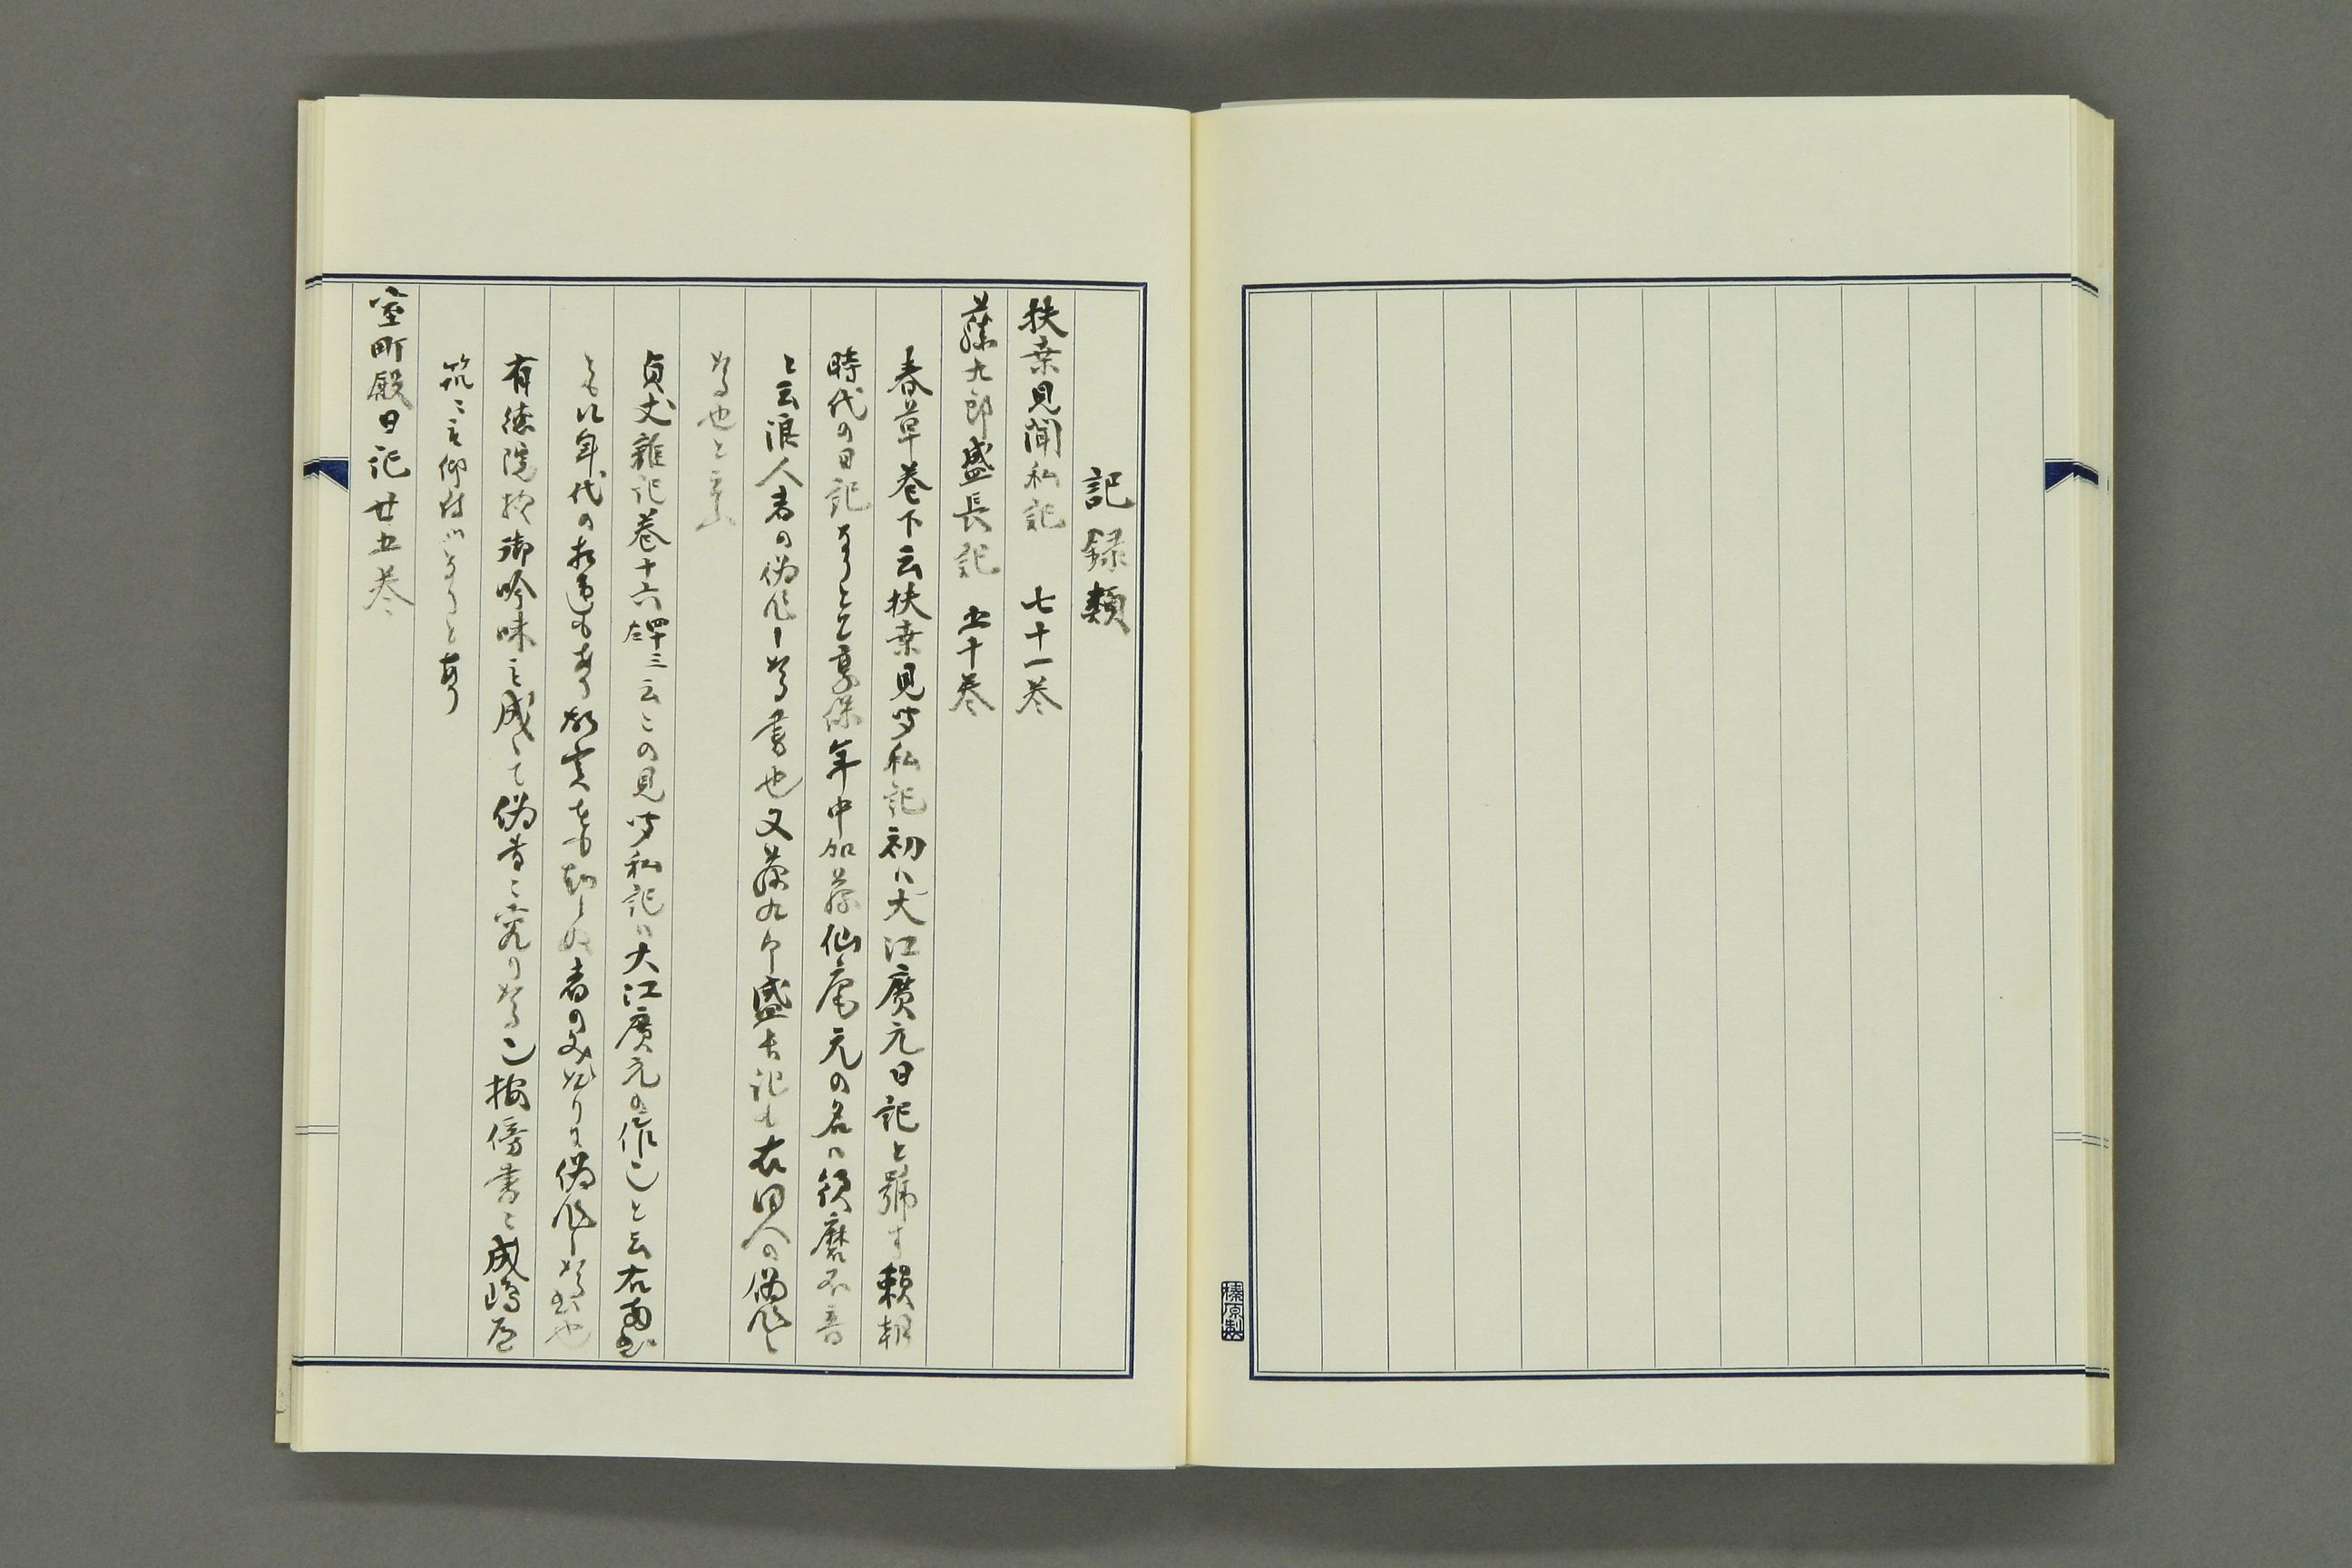 記録類
扶桒見聞私記　七十一巻
藤九郎盛長記　五十巻
春草巻下云扶桒見聞私記初ハ大江廣元日記と號す頼朝
時代の日記なりとそ享保年中加藤仙庵元の名ハ須磨不音
と云浪人者の偽作し たる書也又藤九郎盛長記も右同人の偽作し
たる也と云々
貞丈雜記巻十六四十三云この見聞私記ハ大江廣元の作也と云右両書
とも に年代の相違もあり故実をも知らぬ者の文 なり 偽作したる書也
有徳院様御吟味 成して偽書に究りたる也按傍書ニ成嶋道
筑ニ 仰付 なりとあり
室町殿日記廿五巻
榛原製